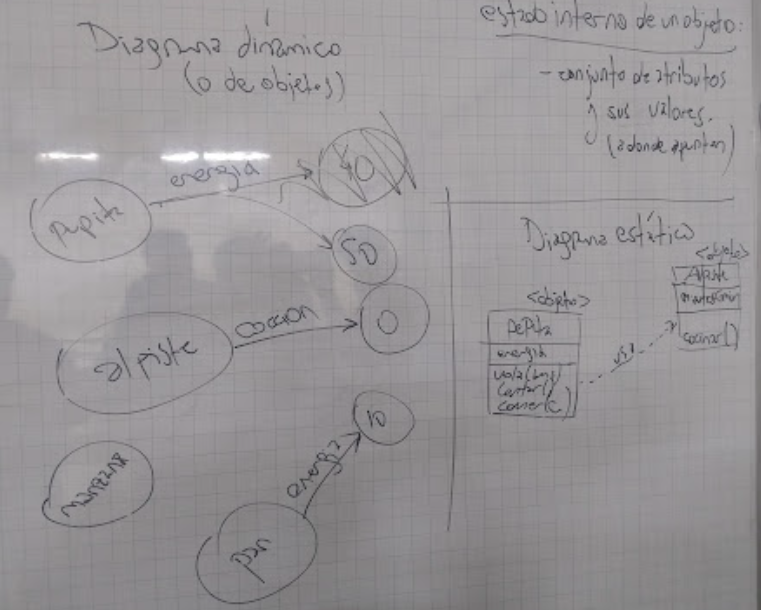 Diagrama dinámico
(o de objetos)
pepita
energia
40
50
alpiste
coccion
0
manzana
pan
energia
10
estado interno de un objeto:
- conjunto de atributos
y sus valores.
(a donde apuntan)
Diagrama estático
<objeto>
Pepita
energia
vola(kms)
cantar()
comer(c)
usa
<objeto>
Alpiste
cocinar()